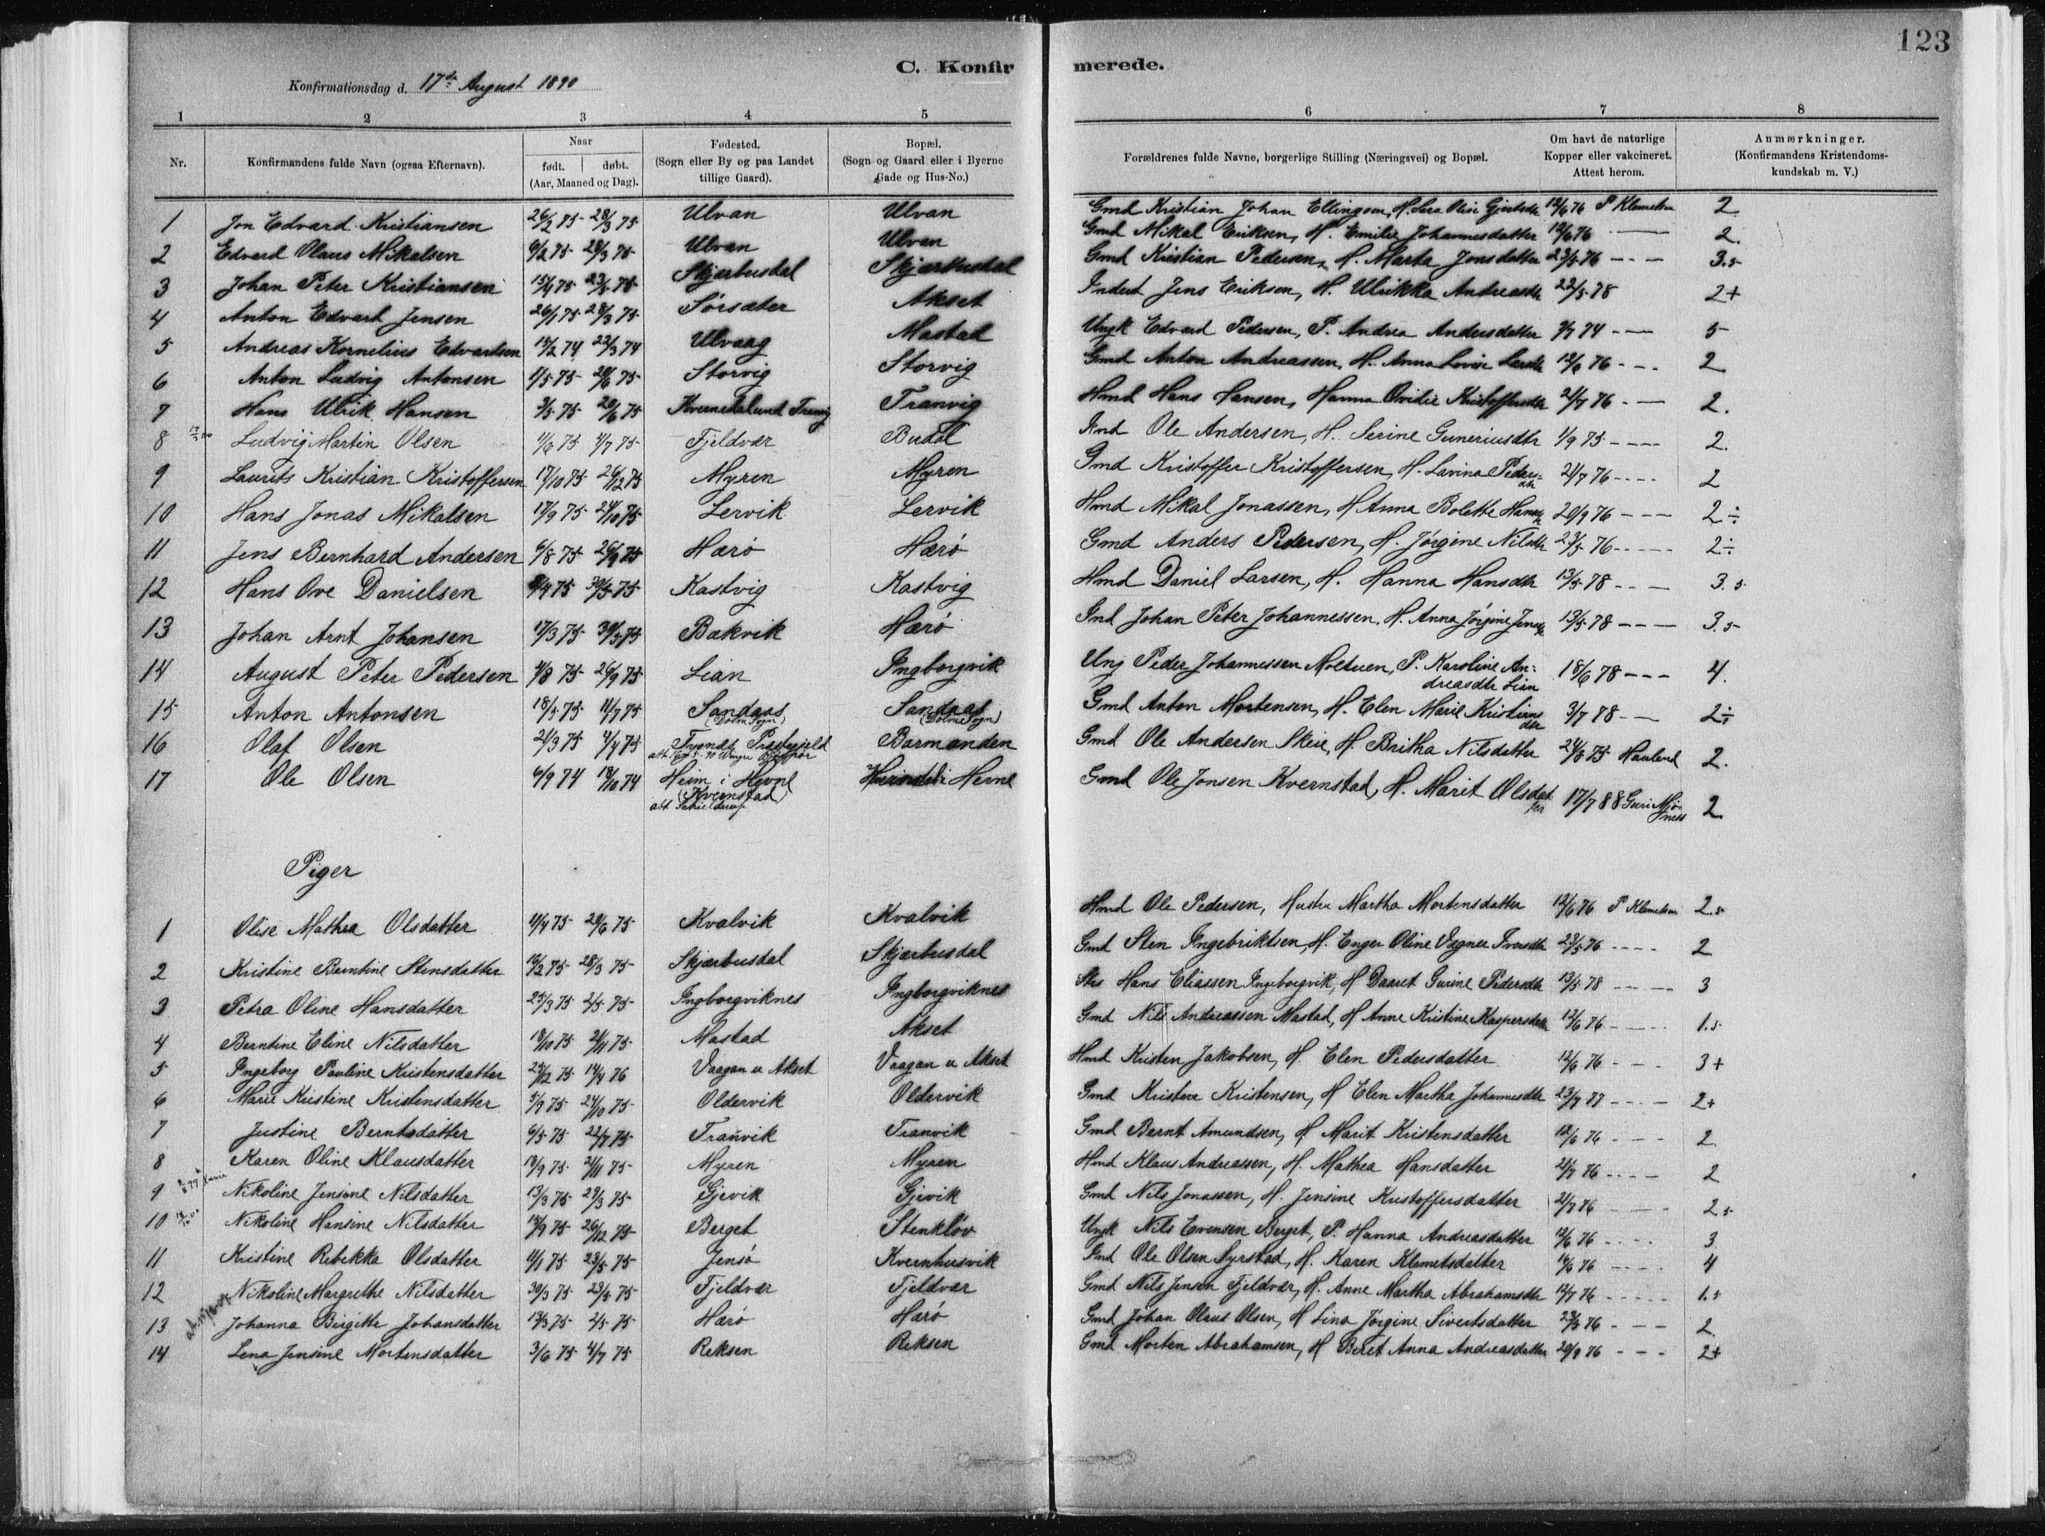 123
C. Konfirmerede.
Konfirmationsdag d. 17de August 1890
1 2 3 4 5 6 7 8
Nr. Konfirmandens fulde Navn (ogsaa Efternavn). Naar født. døbt. (Aar, Maaned og Dag). Fødested. (Sogn eller By og paa Landet tillige Gaard). Bopæl. (Sogn og Gaard eller i Byerne Gade og Hus-No.) Forældrenes fulde Navne, borgerlige Stilling (Næringsvei) og Bopæl. Om havt de naturlige Kopper eller vakcineret. Attest herom. Anmærkninger. (Konfirmandens Kristendomskundskab m. V.)
1 Jon Edvard Kristiansen 26/2 75 28/3 75 Ulvan Ulvan Gmd Kristian Johan Ellingsen, H. Sera Olise 12/6 76 P Klemetsen 2
2 Edvard Olaus Mikalsen 6/2 75 28/3 75 Ulvan Ulvan Gmd Mikal Eriksen, H. Emilie Johannesdatter 12/6 76 — 2.
3 Johan Peter Kristiansen Skjærbusdal Skjærbusdal Gmd Kristian Pedersen, H. Marta Jonsdatter 23/5 76 - — - 3.5
4 Anton Edvart Jensen 26/1 75 28/3 75 Sørsæter Akset Inderst Jens Eriksen, H. Ulrikka Andreasdtr 22/5 78 2+
5 Andreas Kornelius Edvardsen 19/2 74 22/3 74 Ulvaag Mastad Ungk Edvard Pedersen, P. Andrea Andersdatter 74 - — 5
6 Anton Ludvig Antonsen 4/5 75 20/6 75 Storvig Storvig Gmd Anton Andreassen, H. Anna Lovise 12/6 76 - - - 2
7 Hans Ulrik Hansen 3/5 75 20/6 75 Kvernedalund Tranvig Tranvig Hmd Hans Hansen, Hanna Ovidie Kristoffersdtr 21/7 76 - — 2.
8 Ludvig Martin Olsen 1/6 75 4/7 75 Fjeldvær Budal Ind Ole Andersen, H. Serine Guneriusdtr 1/9 75 - - - - 2.
9 Laurits Kristian Kristoffersen 17/10 75 26/12 75 Myren Myren Gmd Kristoffer Kristoffersen, H. Lavina Pedersdtr 21/7 76 - - - - 2
10 Hans Jonas Mikalsen 17/9 75 24/10 75 Lervik Lervik Hmd Mikal Jonassen, H Anna Bolette 20/9 76 - - - 2÷
11 Jens Bernhard Andersen 6/8 75 26/9 75 Hærø Hærø Gmd Anders Pedersen, H. Jørgine Nilsdtr 23/5 76 - - - - 2÷
12 Hans Ove Danielsen 30/5 75 Kastvig Kastvig Hmd Daniel Larsen, H. Hanna Hansdtr 13/5 78 - - — 3.5
13 Johan Arnt Johansen 17/3 75 30/5 75 Bækvik Hærø Ind Johan Peter Johannessen, H. Anna Jørgine 13/5 78 - - - 3.5
14 August Peter Pedersen 4/8 75 26/9 75 Lian Ingborgvik Ung Peder Johannessen, P. Karoline Andreasdtr Lian 18/6 78 - - - 4.
15 Anton Antonsen 18/5 75 11/7 75 Sandaas (Dolm Sogn) Sandaas (Dolme Sogn) Gmd Anton Mortensen, H. Elen Marie Kristiansdtr 3/7 78 - — 2÷
16 Olaf Olsen 2/3 75 4/4 75 Barmanden Gmd Ole Andersen Skeie, H. Britha Nilsdatter 24/8 75 2.
17 Ole Olsen 6/9 74 18/10 74 Heim i Hevne (Kvernstad) Herne Gmd Ole Jonsen Kvernstad, H. Marit Olsdatter 17/7 88 Guri Mjøness 2
Piger
1 Olise Mathea Olsdatter 11/4 75 20/6 75 Kvalvik Kvalvik Hmd Ole Pedersen, Hustru Martha Mortensdatter 12/6 76 P Klemetsen 2.5
2 Kristine Berntine Stensdatter 16/2 75 28/3 75 Skjærbusdal Skjærbusdal Gmd Sten Ingebriktsen, H. Enger Oline 23/5 76 - - - - 2
3 Petra Oline Hansdatter 25/3 75 2/5 75 Ingborgviknes Ingborgviknes Hans Eliassen Ingeborgvik, H Daaret Gurine Pedersdtr 13/5 78 - - — 3
4 Berntine Eline Nilsdatter 18/10 75 21/11 75 Mastad Akset Gmd Nils Andreassen Mastad, H Anne Kristine Kaspersdatter 12/6 76 - - - - 1.5
5 Ingeborg Pauline Kristensdatter 25/12 75 14/4 76 Vaagan u Akset Vaagan u Akset Hmd Kristen Jakobsen, H. Elen Pedersdatter 12/6 76 - - - 3+
6 Marie Kristine Kristensdatter 5/9 75 24/10 75 Oldervik Oldervik Gmd Kristen Kristensen, H Elen Martha Johannesdtr 23/7 77 - - - - 2+
7 Justine Berntsdatter 6/5 75 22/7 75 Tranvik Tranvik Gmd Bernt Amundsen, H Marit Kristensdatter 12/6 76 - - - 2
8 Karen Oline Klausdatter 18/9 75 21/11 75 Myren Myren Hmd Klaus Andreassen, H. Mathea Hansdatter 21/7 76 - - - - 2
9 Nikoline Jensine Nilsdatter 13/3 75 29/3 75 Gjevik Gjevik Gmd Nils Jonassen, H. Jensine Kristoffersdatter 21/7 76 - - - - 2.5
10 Nikoline Hansine Nilsdatter 26/12 75 Berget Stenkløv Ungk Nils Evensen Berget, P. Hanna Andreasdatter 12/6 76 - - - - 3
11 Kristine Rebekka Olsdatter 11/1 75 23/5 75 Jensø Kvernhusvik Gmd Ole Olsen Syrstad, H. Karen Klemetsdatter 76 - - - - 4
12 Nikoline Margrethe Nilsdatter 30/3 75 23/5 75 Fjeldvær Fjeldvær Gmd Nils Jensen Fjeldvær, H. Anne Martha Abrahamsdtr 12/7 76 - - - - - 1.5
13 Johanna Birgitte Johansdatter 2/5 75 Hærø Hærø Gmd Johan Olaus Olsen, H Lina Jørgine Sivertsdatter 23/5 76 - - - 2
14 Lena Jensine Mortensdatter 3/6 75 4/7 75 Reksen Reksen Gmd Morten Abrahamsen, H Beret Anna Andreasdatter 20/9 76 - - - 2+